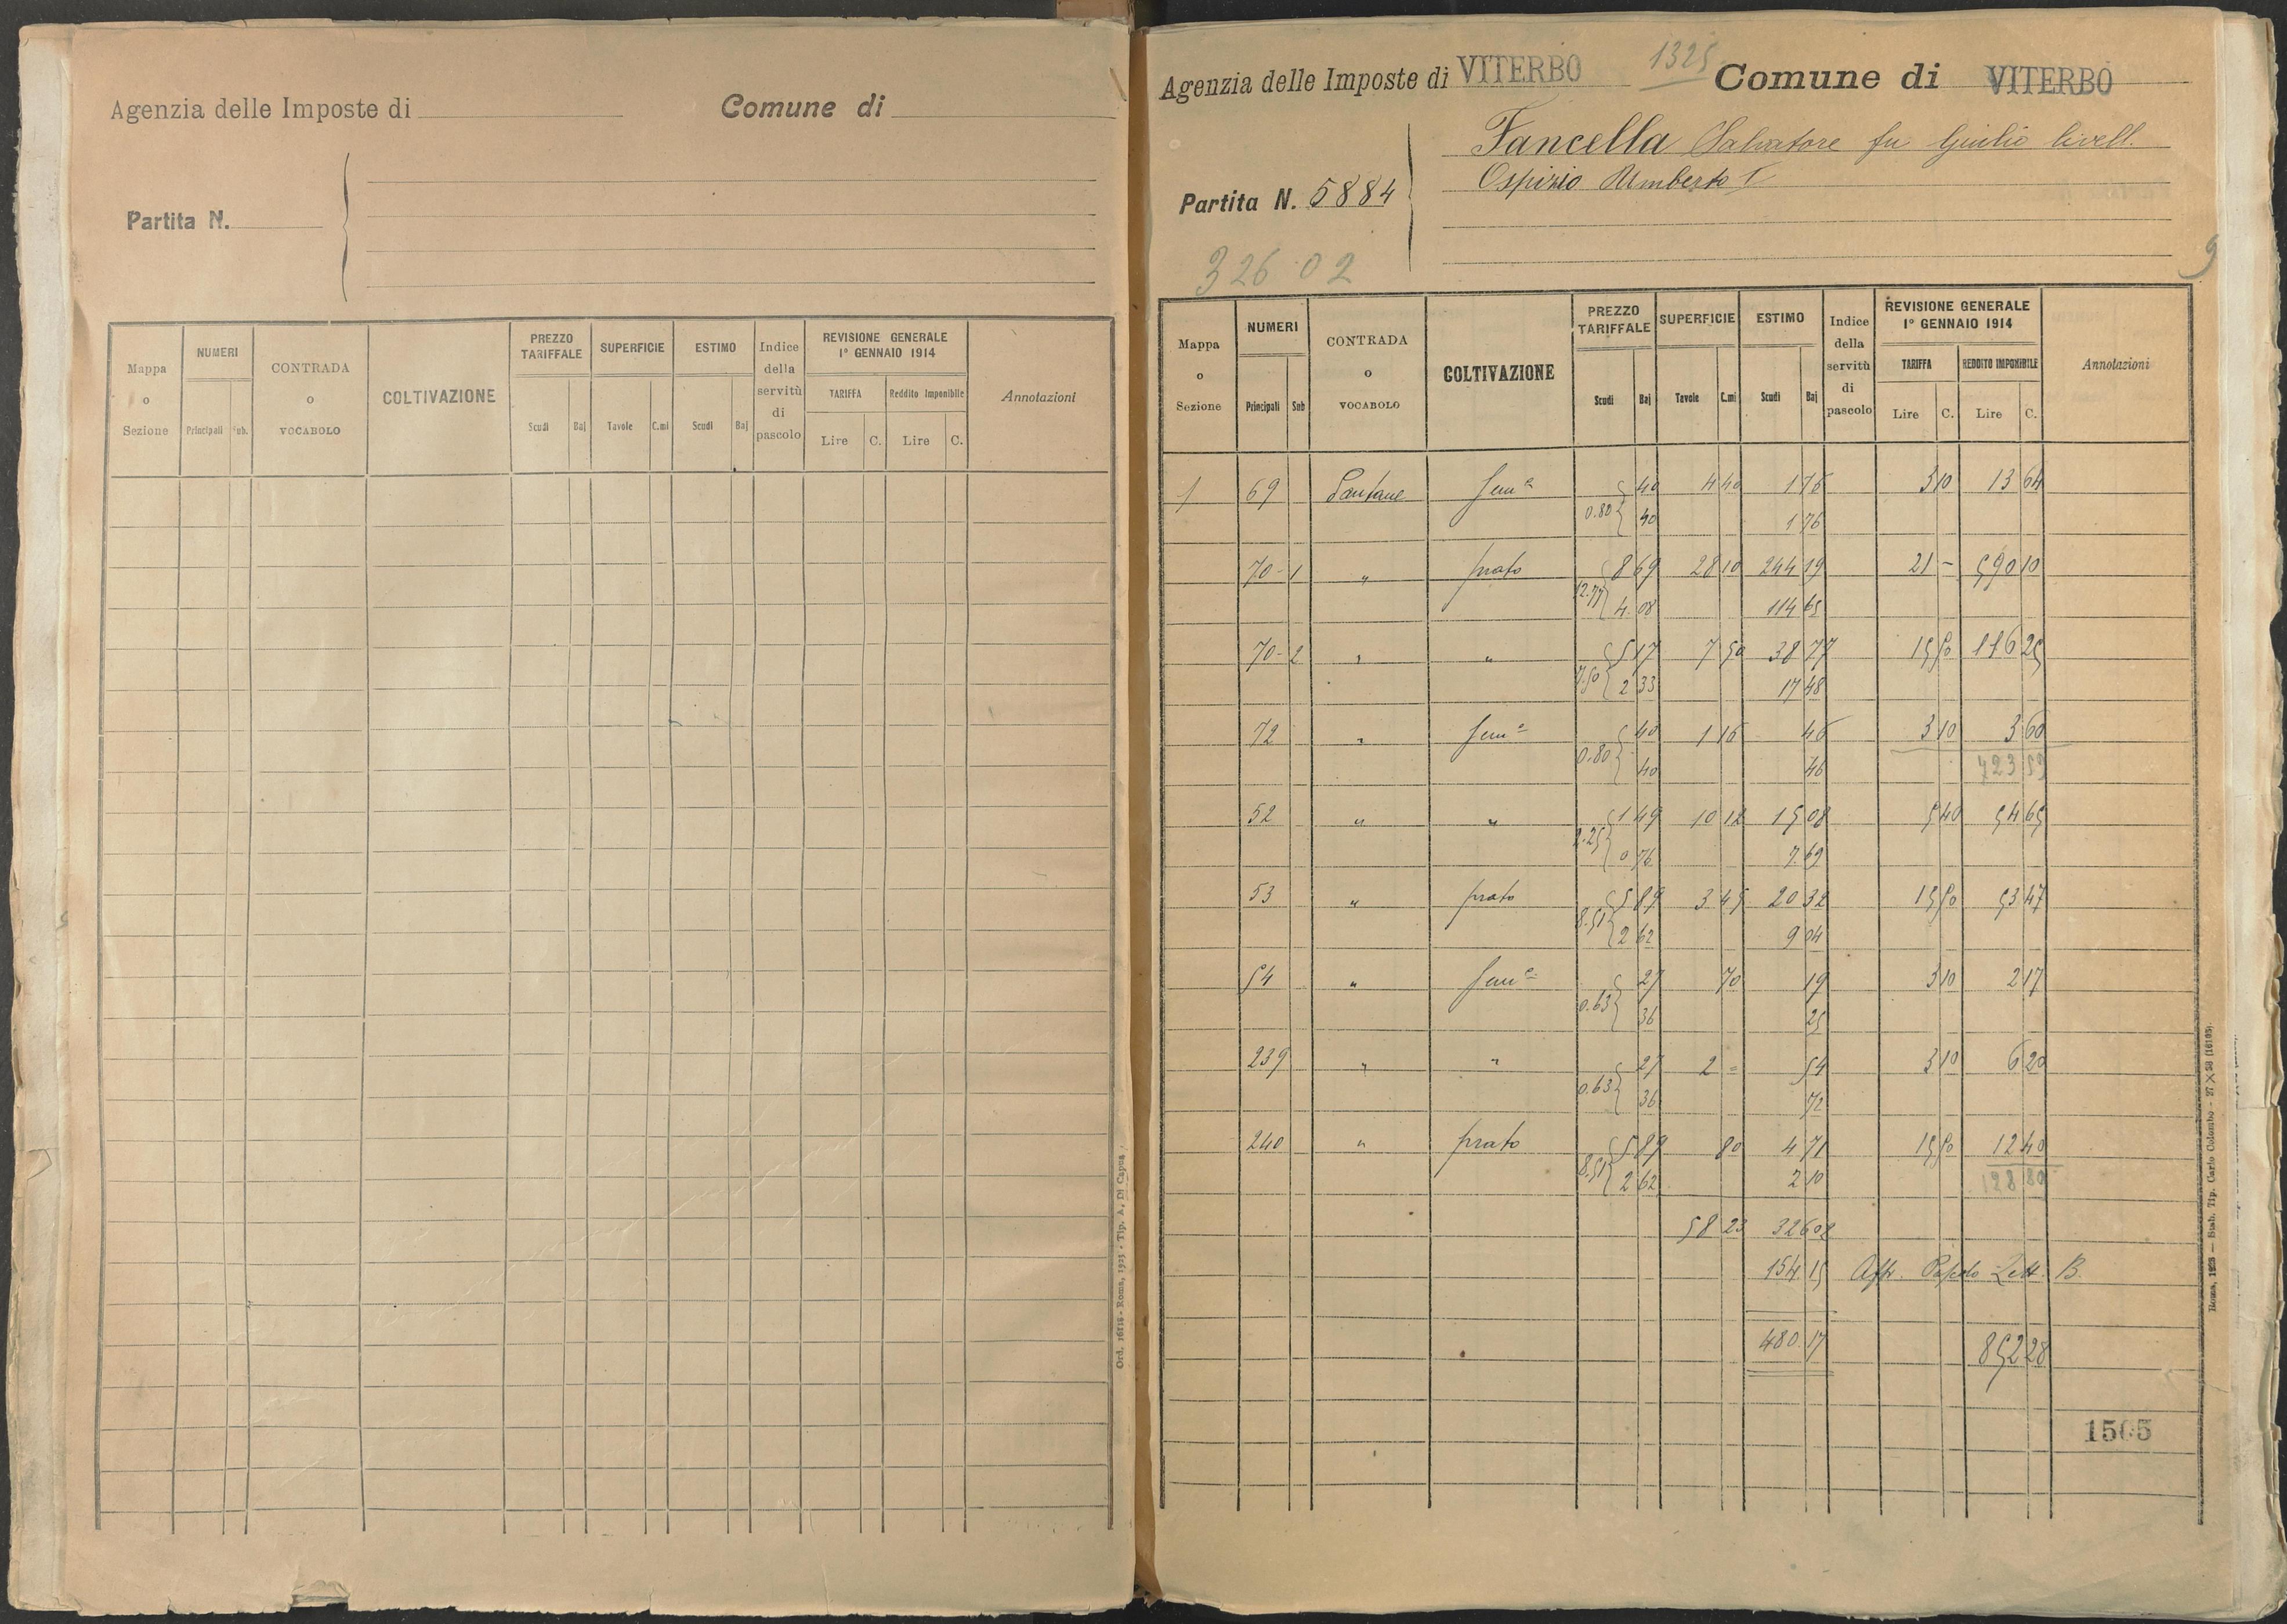 Agenzia delle Imposte di
Comune di
Partita N.
Mappa o Sezione
NUMERI
Principali Sub.
CONTRADA o VOCABOLO
COLTIVAZIONE
PREZZO TARIFFALE
Scudi Baj
SUPERFICIE
Tavole C.mi
ESTIMO
Scudi Baj
Indice della servitù di pascolo
REVISIONE GENERALE 1° GENNAIO 1914
TARIFFA
Lire C.
Reddito Imponibile
Lire C.
Annotazioni
Ord. 16116 - Roma, 1923 - Tip. A. Di Capua
Agenzia delle Imposte di VITERBO 1325 Comune di VITERBO
Fancella Salvatore fu Giulio livell.
Ospizio Umberto I
Partita N. 5884
326 02
9
Mappa o Sezione
NUMERI
Principali Sub
CONTRADA o VOCABOLO
COLTIVAZIONE
PREZZO TARIFFALE
Scudi Baj
SUPERFICIE
Tavole C.mi
ESTIMO
Scudi Baj
Indice della servitù di pascolo
REVISIONE GENERALE 1° GENNAIO 1914
TARIFFA
Lire C.
REDDITO IMPONIBILE
Lire C.
Annotazioni
1 69 Pantane sem.e 40 4 40 1 76 3 10 13 64
0.80 40 1 76
70-1 " prato 8 69 28 10 244 19 21 - 590 10
12.77 4 08 114 65
70-2 " " 5 17 7 50 38 77 15 50 116 25
7.50 2 33 17 48
72 " sem.e 40 1 16 46 3 10 3 60
0.80 40 46 723 59
52 " " 1 49 10 12 15 08 5 40 54 65
2.25 0 76 7 69
53 " prato 5 89 3 45 20 32 15 50 53 47
8.51 2 62 9 04
54 " sem.e 27 70 19 3 10 2 17
0.63 36 25
239 " " 27 2 = 54 3 10 6 20
0.63 36 72
240 " prato 5 89 80 4 71 15 50 12 40
8.51 2 62 2 10 128 80
58 23 326 02
154 15 Aff. Pascolo Lett. B.
480.17 852 28
1505
Roma, 1923 — Stab. Tip. Carlo Colombo - 27 X 38 (16195).